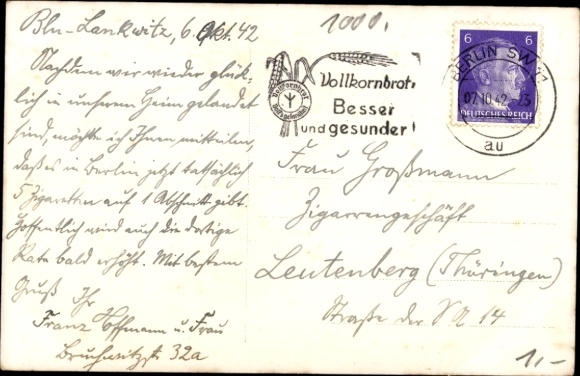 Bln-Lankwitz, 6. Okt. 42
Nachdem wir wieder glück-
lich in unserem Heim gelandet
sind, möchte ich Ihnen mitteilen,
daß es in Berlin jetzt tatsächlich
5 Zigaretten auf 1 Abschnitt gibt.
Hoffentlich wird auch die dortige
Rate bald erhöht. Mit bestem
Gruß Ihr
Franz Hoffmann u. Frau
Bruchwitzstr 32a
1000.
Vollkornbrot
Vollkornbrot
Besser
und gesunder!
6 6
DEUTSCHES REICH
BERLIN SW 11
07.10.42
au
Frau Großmann
Zigarrengeschäft
Leutenberg (Thüringen)
Straße der SA 14
1,-